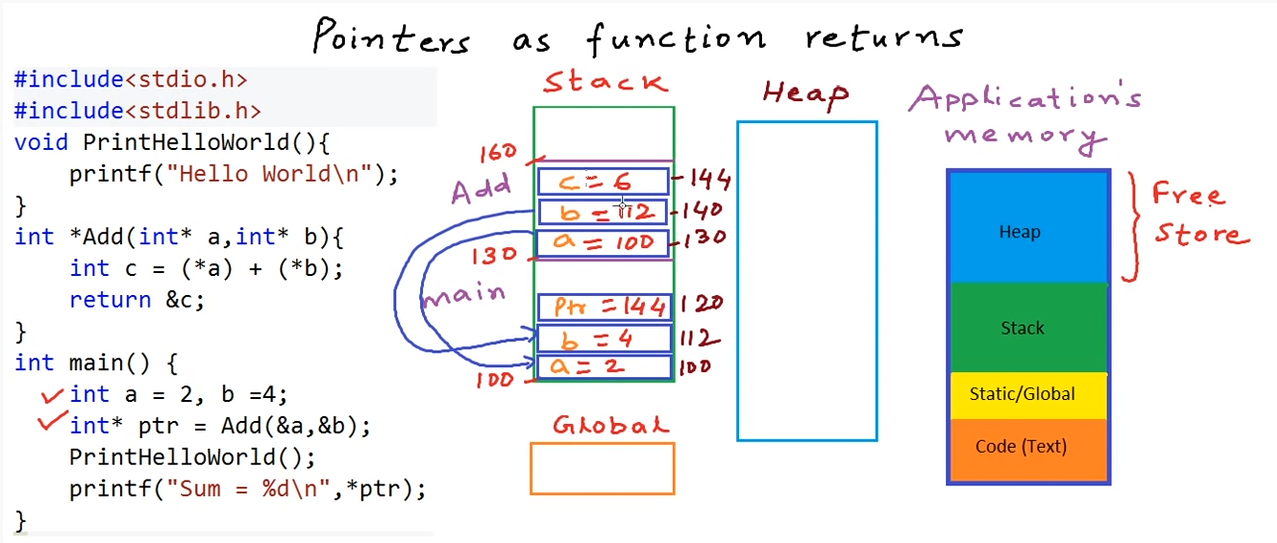 Pointers as function returns
#include<stdio.h>
#include<stdlib.h>
void PrintHelloWorld(){
    printf("Hello World\n");
}
int *Add(int* a,int* b){
    int c = (*a) + (*b);
    return &c;
}
int main() {
    int a = 2, b =4;
    int* ptr = Add(&a,&b);
    PrintHelloWorld();
    printf("Sum = %d\n",*ptr);
}
Stack
160
Add
c = 6
144
b = 112
140
a = 100
130
130
main
Ptr = 144
120
b = 4
112
a = 2
100
100
Global
Heap
Application's
memory
Heap
Stack
Static/Global
Code (Text)
Free
Store